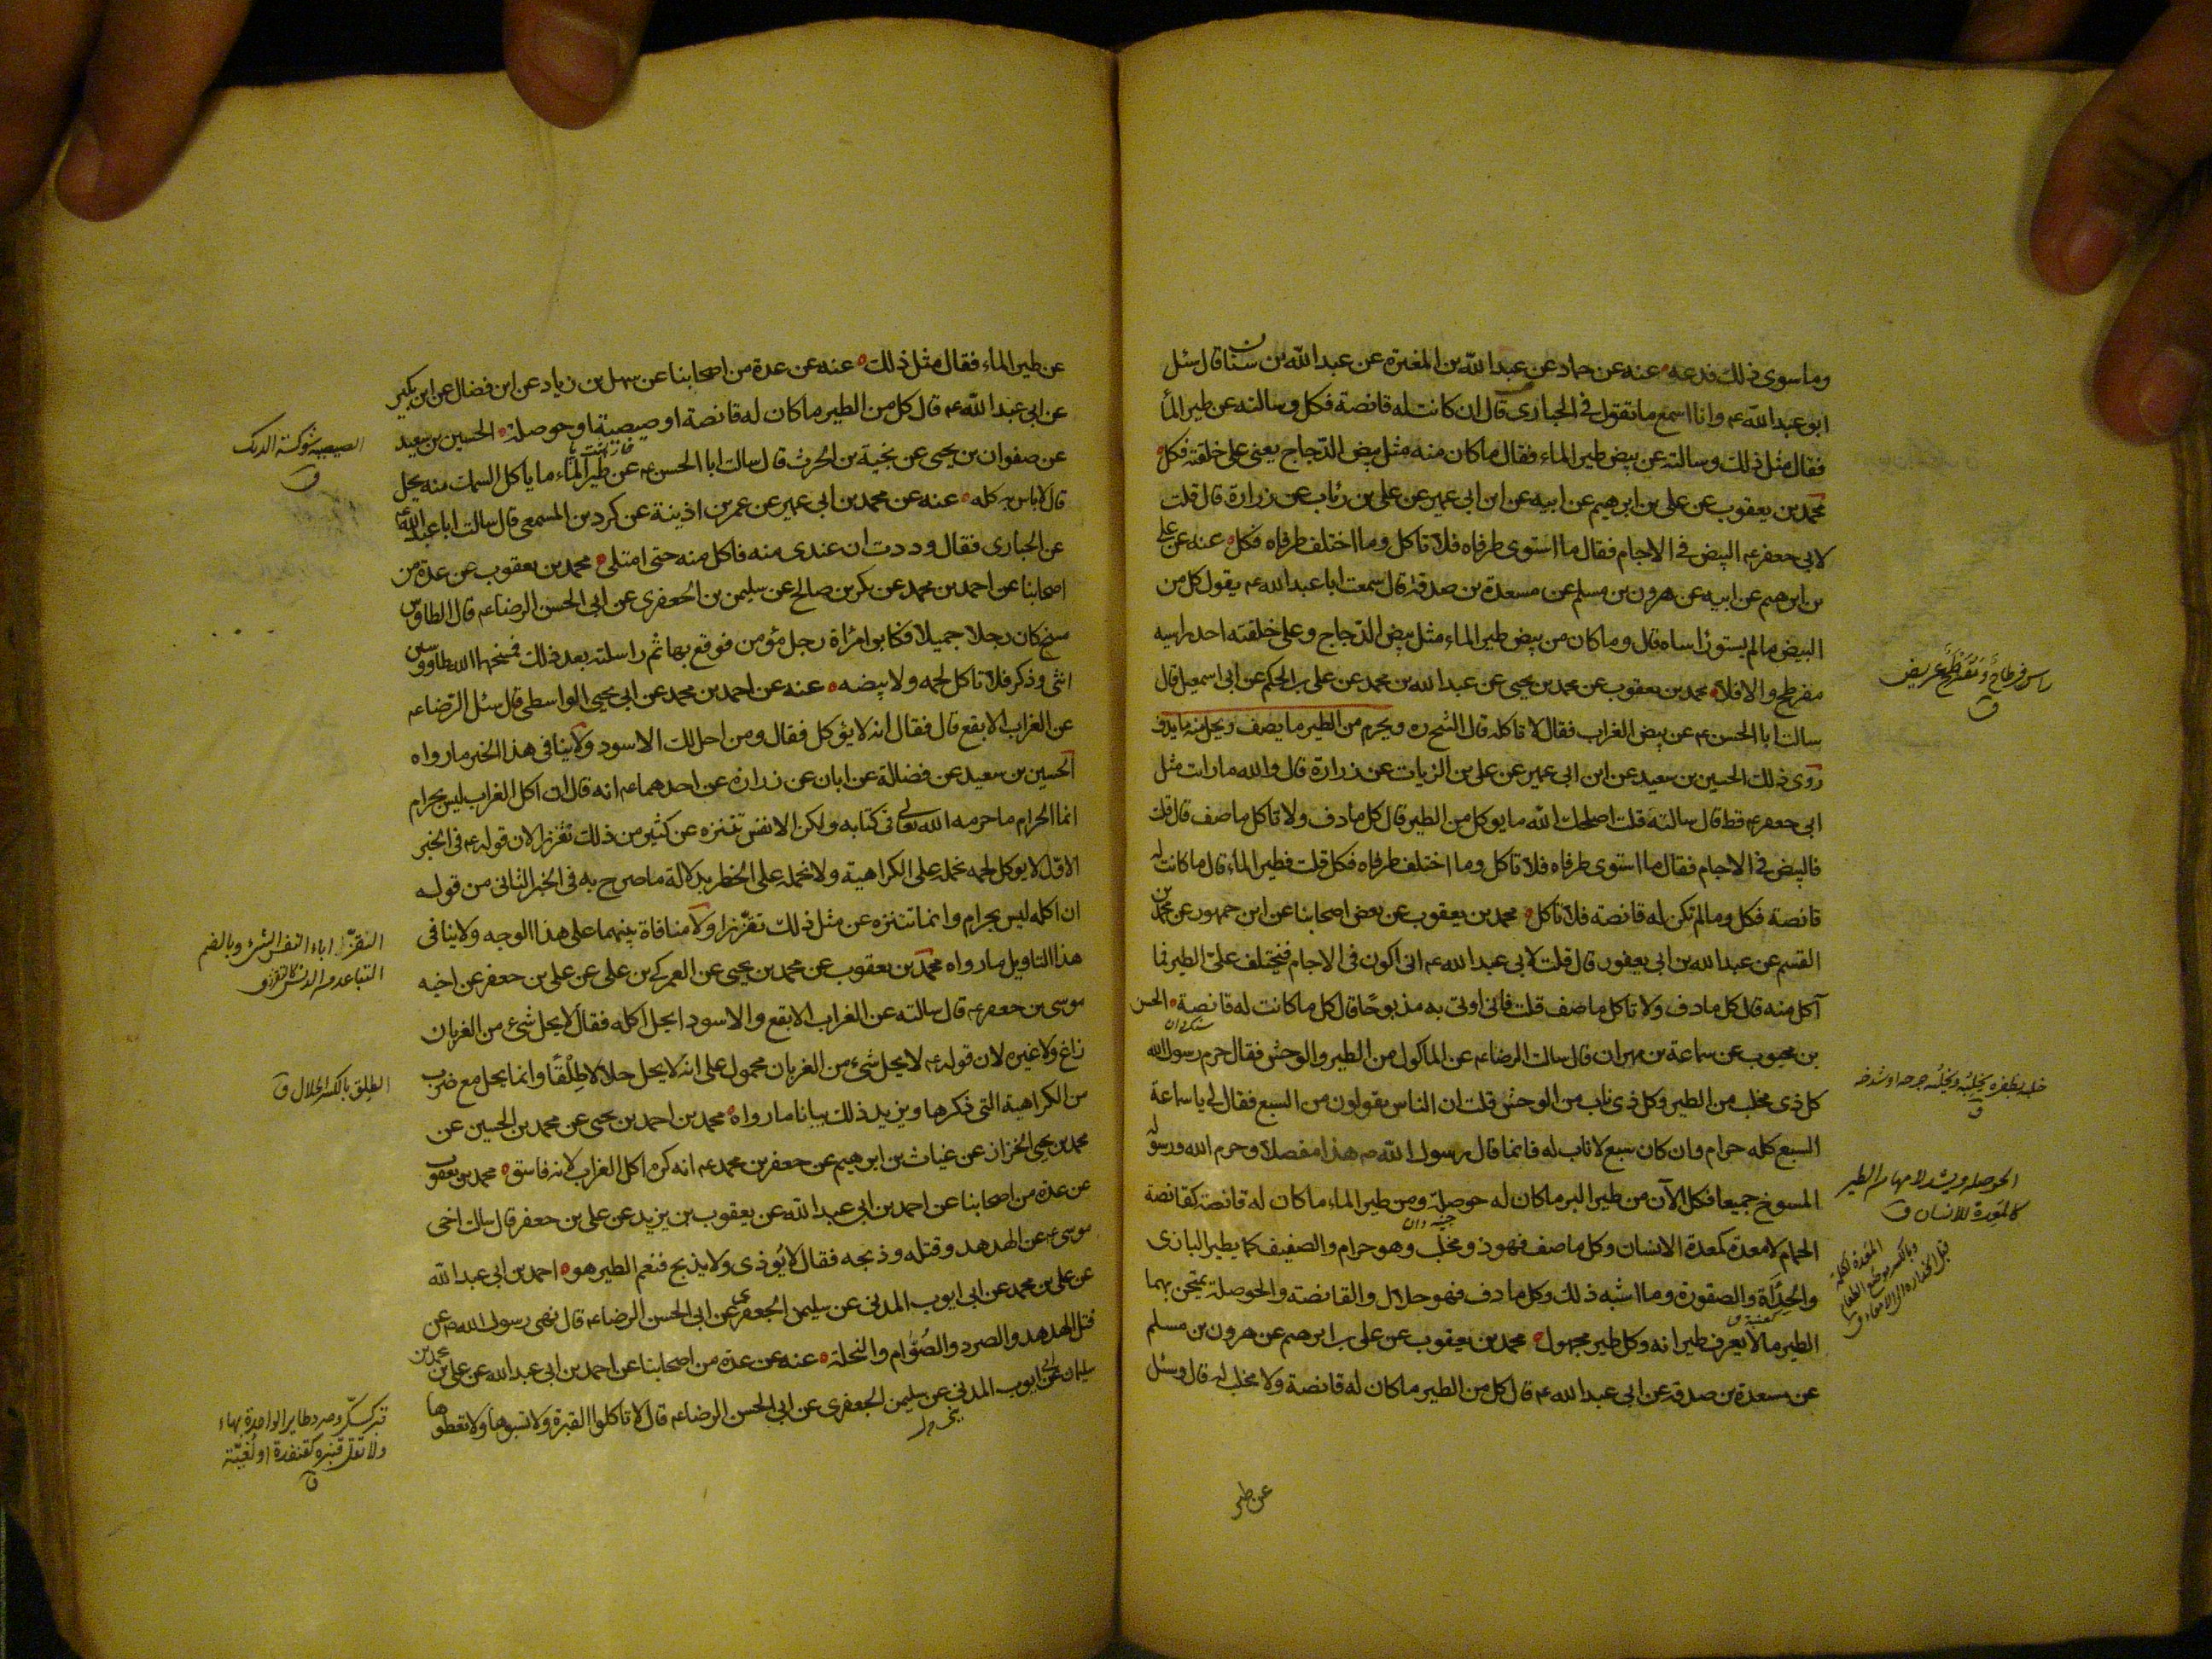 وما سوى ذلك فدعه عنه عن حماد عن عبد الله بن المغيرة عن عبد الله بن سنان قال سئل
ابو عبد الله ع وانا اسمع ما تقول في الحبارى قال ان كانت له قانصة فكل وسالته عن طير الماء
فقال مثل ذلك وسالته عن بيض طير الماء فقال ما كان منه مثل بيض الدجاج يعنى على خلقته فكل
محمد بن يعقوب عن على بن ابرهيم عن ابيه عن ابن ابى عمير عن على بن رئاب عن زرارة قال قلت
لابى جعفر ع البيض في الاجام فقال ما استوى طرفاه فلا تاكل وما اختلف طرفاه فكل عنه عن على
بن ابرهيم عن ابيه عن هرون بن مسلم عن مسعدة بن صدقة قال سمعت ابا عبد الله ع يقول كل من
البيض ما لم يستو راساه قال وما كان من بيض طير الماء مثل بيض الدجاج وعلى خلقته احد راسيه
مفرطح والا فلا محمد بن يعقوب عن محمد بن يحيى عن عبد الله بن محمد عن على بن الحكم عن ابى اسمعيل قال
سالت ابا الحسن ع عن بيض الغراب فقال لا تاكله قال الشيخ ره ويحرم من الطير ما يصف ويحل منه ما يدف
روى ذلك الحسين بن سعيد عن ابن ابى عمير عن على بن الزيات عن زرارة قال والله ما رايت مثل
ابى جعفر ع قط قال سالته قلت اصلحك الله ما يوكل من الطير قال كل ما دف ولا تاكل ما صف قال قلت
فالبيض في الاجام فقال ما استوى طرفاه فلا تاكل وما اختلف طرفاه فكل قلت فطير الماء قال ما كانت له
قانصة فكل وما لم تكن له قانصة فلا تاكل محمد بن يعقوب عن بعض اصحابنا عن ابن جمهور عن محمد بن
القسم عن عبد الله بن ابى يعفور قال قلت لابى عبد الله ع انى اكون في الاجام فيختلف على الطير فما
آكل منه قال كل ما دف ولا تاكل ما صف قلت فانى اوتى به مذبوحا قال كل ما كانت له قانصة الحسن
سنكدان
بن محبوب عن سماعة بن مهران قال سالت الرضا ع عن الماكول من الطير والوحش فقال حرم رسول الله
كل ذى مخلب من الطير وكل ذى ناب من الوحش قلت ان الناس يقولون من السبع فقال لى يا سماعة
السبع كله حرام وان كان سبع لا ناب له فانما قال رسول الله ص هذا مفصلا وحرم الله ورسوله
المسوخ جميعا فكل الآن من طير البر ما كان له حوصلة ومن طير الماء ما كان له قانصة كقانصة
الحمام لا معدة كمعدة الانسان وكل ما صف فهو ذو مخلب وهو حرام والصفيف كما يطير البازى
والحداة والصقورة وما اشبه ذلك وكل ما دف فهو حلال والقانصة والحوصلة يمتحن بهما
الطير ما لا يعرف طيرانه وكل طير مجهول محمد بن يعقوب عن على بن ابرهيم عن هرون بن مسلم
عن مسعدة بن صدقة عن ابى عبد الله ع قال كل من الطير ما كان له قانصة ولا مخلب له قال وسئل
عن طير
راس فرطاح ومفرطح عريض
ق
خلبه بظفره يخلبه ويخلبه جرحه او خدشه
ق
الحوصله ويشد لامها من الطير
كالمعدة للانسان ق
المعدة ككلمة
وبالكسر موضع الطعام
قبل انحداره الى الامعاء ق
عن طير الماء فقال مثل ذلك عنه عن عدة من اصحابنا عن سهل بن زياد عن ابن فضال عن ابن بكير
عن ابى عبد الله ع قال كل من الطير ما كان له قانصة او صيصية او حوصلة الحسين بن سعيد
عن صفوان بن يحيى عن نجية بن الحرث قال سالت ابا الحسن ع عن طير الماء ما ياكل السمك منه يحل
قال لا باس به كله عنه عن محمد بن ابى عمير عن عمر بن اذينة عن كردين المسمعى قال سالت ابا عبد الله ع
عن الحبارى فقال وددت ان عندى منه فاكل منه حتى امتلى محمد بن يعقوب عن عدة من
اصحابنا عن احمد بن محمد عن بكر بن صالح عن سليمن بن الجعفرى عن ابى الحسن الرضا ع قال الطاوس
مسخ كان رجلا جميلا فكابر امراة رجل مؤمن فوقع بها ثم راسلته بعد ذلك فمسخهما الله طاووسين
انثى وذكر فلا تاكل لحمه ولا بيضه عنه عن احمد بن محمد عن ابى يحيى الواسطى قال سئل الرضا ع
عن الغراب الابقع قال فقال انه لا يؤكل فقال ومن احل لك الاسود ولا ينافى هذا الخبر ما رواه
الحسين بن سعيد عن فضالة عن ابان عن زرارة عن احدهما ع انه قال ان اكل الغراب ليس بحرام
انما الحرام ما حرمه الله تعالى في كتابه ولكن الانفس تتنزه عن كثير من ذلك تقززا لان قوله ع في الخبر
الاول لا يوكل لحمه نحمله على الكراهية ولا نحمله على الحظر بدلالة ما صرح به في الخبر الثانى من قوله
ان اكله ليس بحرام وانما تتنزه عن مثل ذلك تقززا ولا منافاة بينهما على هذا الوجه ولا ينافى
هذا التاويل ما رواه محمد بن يعقوب عن محمد بن يحيى عن العمركى بن على عن على بن جعفر عن اخيه
موسى بن جعفر ع قال سالته عن الغراب الابقع والاسود ايحل اكله فقال لا يحل شئ من الغربان
زاغ ولا غيره لان قوله ع لا يحل شئ من الغربان محمول على انه لا يحل حلالا طلقا وانما يحل مع ضرب
من الكراهية التى ذكرها ويزيد ذلك بيانا ما رواه محمد بن احمد بن يحيى عن محمد بن الحسين عن
محمد بن يحيى الخزاز عن غياث بن ابرهيم عن جعفر بن محمد ع انه كره اكل الغراب لانه فاسق محمد بن يعقوب
عن عدة من اصحابنا عن احمد بن ابى عبد الله عن يعقوب بن يزيد عن على بن جعفر قال سالت اخى
موسى ع عن الهدهد وقتله وذبحه فقال لا يؤذى ولا يذبح فنعم الطير هو احمد بن ابى عبد الله
عن على بن محمد عن ابى ايوب المدنى عن سليمن الجعفرى عن ابى الحسن الرضا ع قال نهى رسول الله ص عن
قتل الهدهد والصرد والصوام والنحلة عنه عن عدة من اصحابنا عن احمد بن ابى عبد الله عن على بن محمد بن
سليمان عن ابى ايوب المدنى عن سليمن الجعفرى عن ابى الحسن الرضا ع قال لا تاكلوا القبرة ولا تسبوها ولا تعطوها
الصيصية شوكة الديك
ق
التقزز اباء النفس الشئ وبالضم
التباعد من الدنس كالتقزز ق
الطلق بالكسر الحلال ق
قبر كسكر وصرد طاير الواحدة بهاء
ولا تقل قنبرة كقنفذة او لغية
ق